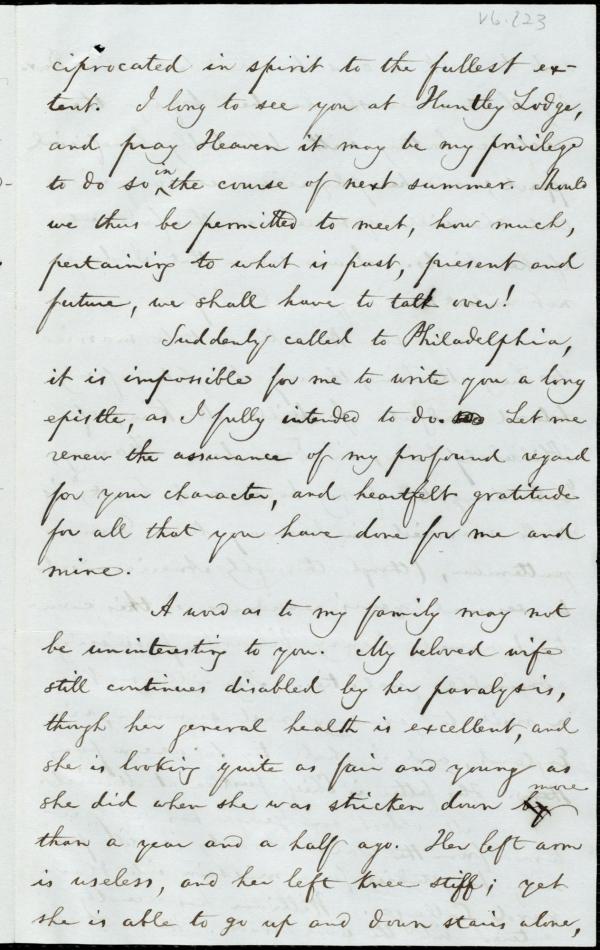 V6. 223
ciprocated in spirit to the fullest ex-
tent. I long to see you at Huntley Lodge,
and pray Heaven it may be my privilege
to do so in the course of next summer. Should
we thus be permitted to meet, how much,
pertaining to what is past, present and
future, we shall have to talk over!
Suddenly called to Philadelphia,
it is impossible for me to write you a long
epistle, as I fully intended to do. Let me
renew the assurance of my profound regard
for your character, and heartfelt gratitude
for all that you have done for me and
mine.
A word as to my family may not
be uninteresting to you. My beloved wife
still continues disabled by her paralysis,
though her general health is excellent, and
she is looking quite as fair and young as
she did when she was stricken down more
than a year and a half ago. Her left arm
is useless, and her left knee stiff; yet
she is able to go up and down stairs alone,